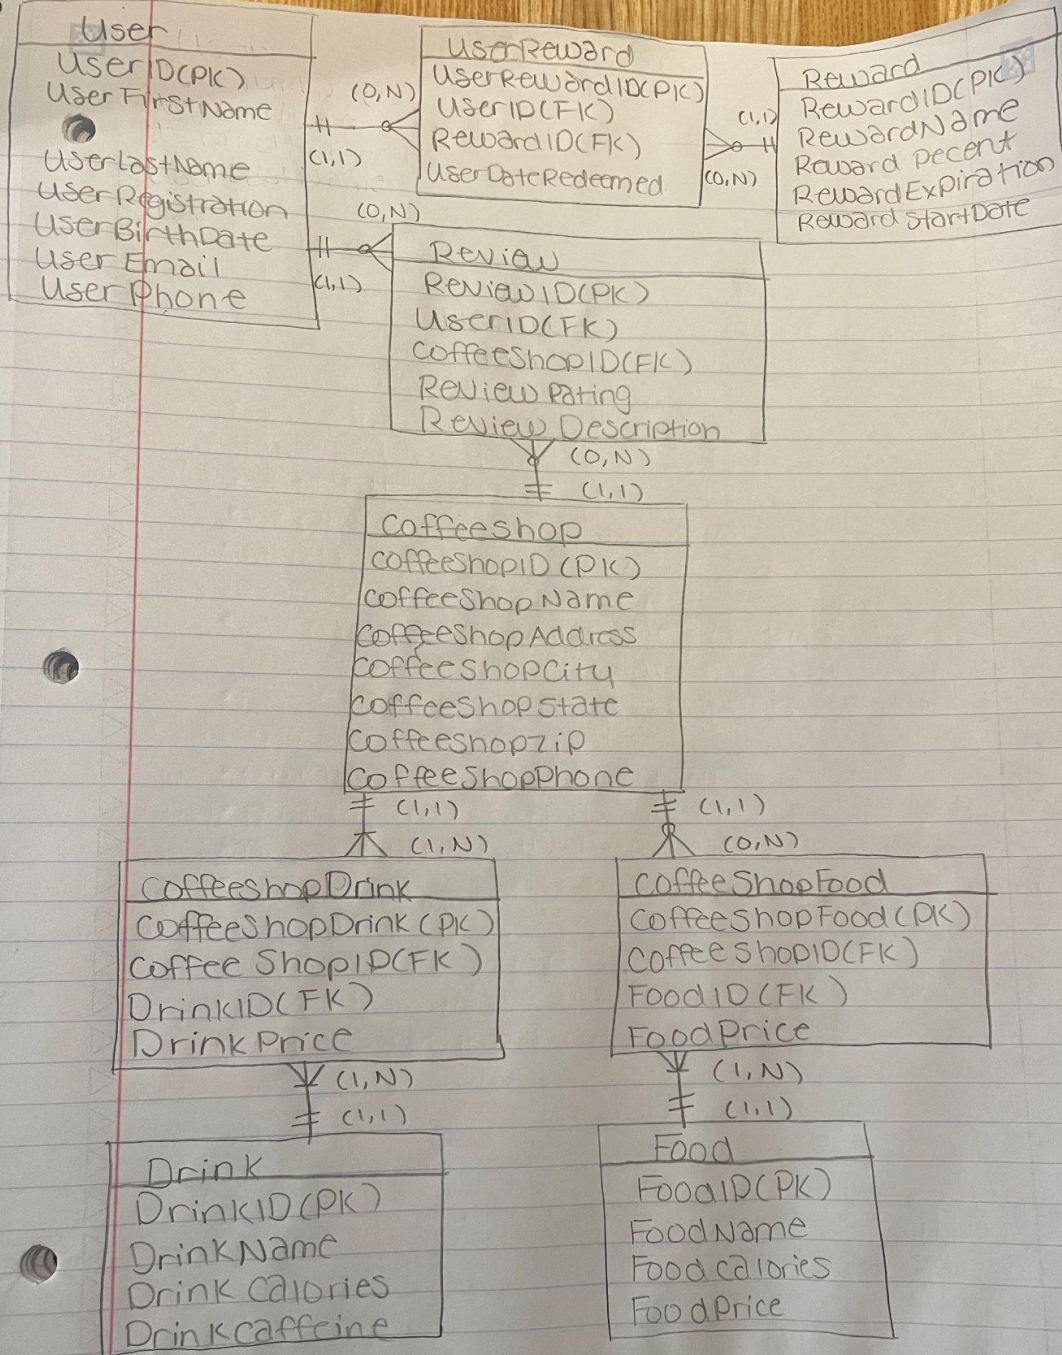 User
UserID(PK)
UserFirstName
UserLastName
UserRegistration
UserBirthDate
UserEmail
UserPhone
(0,N)
(1,1)
(0,N)
(1,1)
UserReward
UserRewardID(PK)
UserID(FK)
RewardID(FK)
UserDateRedeemed
(1,1)
(0,N)
Reward
RewardID(PK)
RewardName
Reward Pecent
RewardExpiration
RewardStartDate
Review
ReviewID(PK)
UserID(FK)
CoffeeShopID(FK)
Review Rating
Review Description
(0,N)
(1,1)
Coffeeshop
CoffeeShopID(PK)
CoffeeShopName
CoffeeShopAddress
CoffeeShopCity
CoffeeShopState
CoffeeShopZip
CoffeeShopPhone
(1,1) (1,1)
(1,N) (0,N)
CoffeeshopDrink
CoffeeShopDrink(PK)
Coffee ShopID(FK)
DrinkID(FK)
DrinkPrice
CoffeeShopFood
CoffeeShopFood(PK)
CoffeeShopID(FK)
FoodID(FK)
FoodPrice
(1,N) (1,N)
(1,1) (1,1)
Drink
DrinkID(PK)
DrinkName
Drink Calories
DrinkCaffeine
Food
FoodID(PK)
FoodName
FoodCalories
FoodPrice